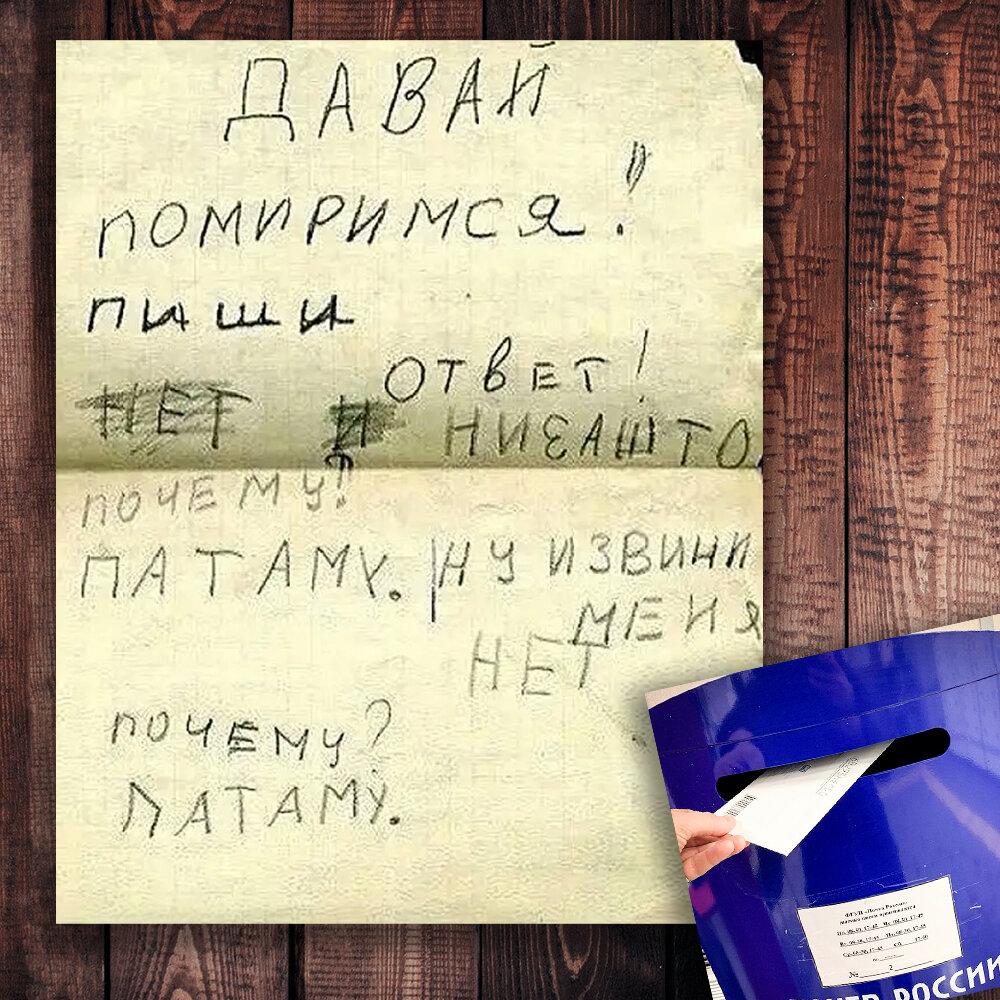 ДАВАЙ
ПОМИРИМСЯ!
ПИШИ
ОТВЕТ!
НЕТ И НИЗАШТО
ПОЧЕМУ?
ПАТАМУ. НУ ИЗВИНИ
МЕНЯ
НЕТ
ПОЧЕМУ?
ПАТАМУ.
ФГУП «Почта России»
№ 2
РОССИИ